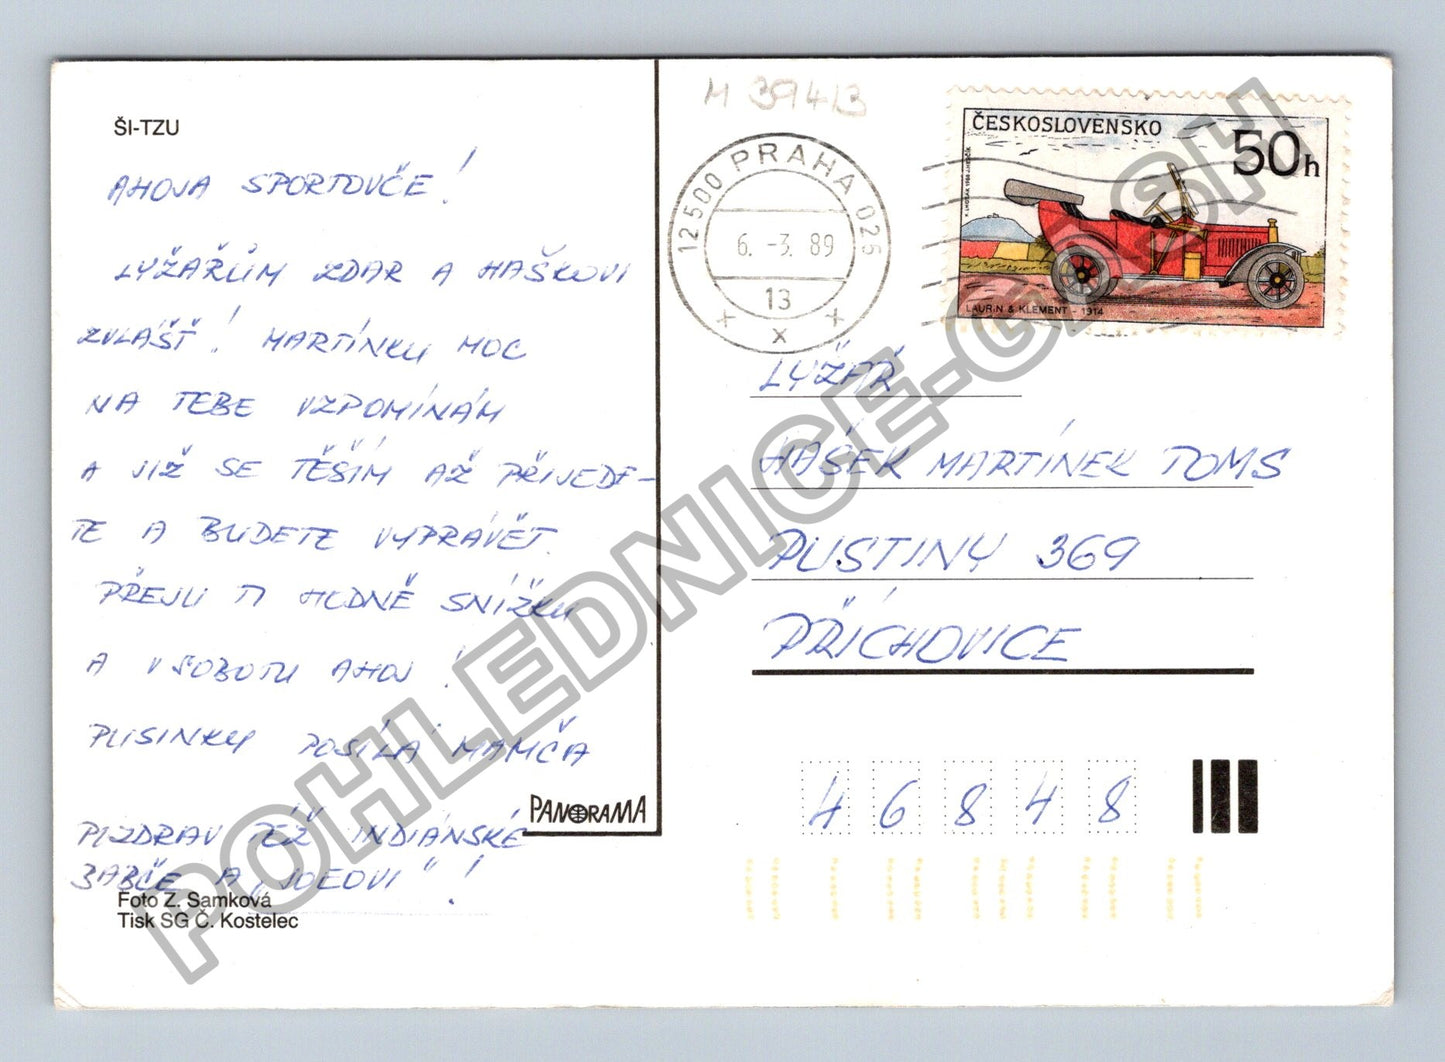 ŠI-TZU
AHOJA SPORTOVČE!
LYŽAŘŮM ZDAR A HAŠKOVI
ZVLÁŠŤ! MARTÍNKU MOC
NA TEBE VZPOMÍNÁM
A JIŽ SE TĚŠÍM AŽ PŘIJEDE-
TE A BUDETE VYPRÁVĚT.
PŘEJU TI HODNĚ SNÍŽKU
A V SOBOTU AHOJ!
PUSINKY POSÍLÁ MAMČA
POZDRAV TÉŽ INDIÁNSKÉ
BABČE A „JOEOVI“!
PANORAMA
Foto Z. Samková
Tisk SG Č. Kostelec
M 39413
12500 PRAHA 025
6. -3. 89
13
x x x
ČESKOSLOVENSKO
50h
LAURIN & KLEMENT - 1914
LYŽAŘ
HAŠEK MARTÍNEK TOMS
PUSTINY 369
PŘÍCHOVICE
46848
POHLEDNICE-CASH